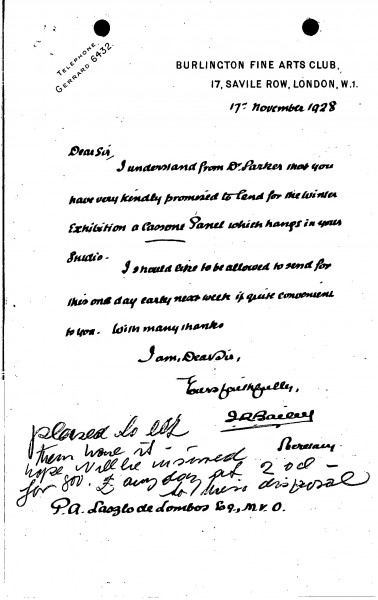 TELEPHONE
GERRARD 6432.
BURLINGTON FINE ARTS CLUB,
17, SAVILE ROW, LONDON, W.1.
17th November 1928
Dear Sir,
I understand from Dr. Parker that you
have very kindly promised to lend for the Winter
Exhibition a Cassone Panel which hangs in your
Studio.
I should like to be allowed to send for
this one day early next week if quite convenient
to you. With many thanks
I am, Dear Sir,
Yours faithfully,
Secretary
pleased to let
them have it
hope will be insured
for 800. £ any day at
to their disposal
P.A. Laszlo de Lombos Esq., M.V.O.